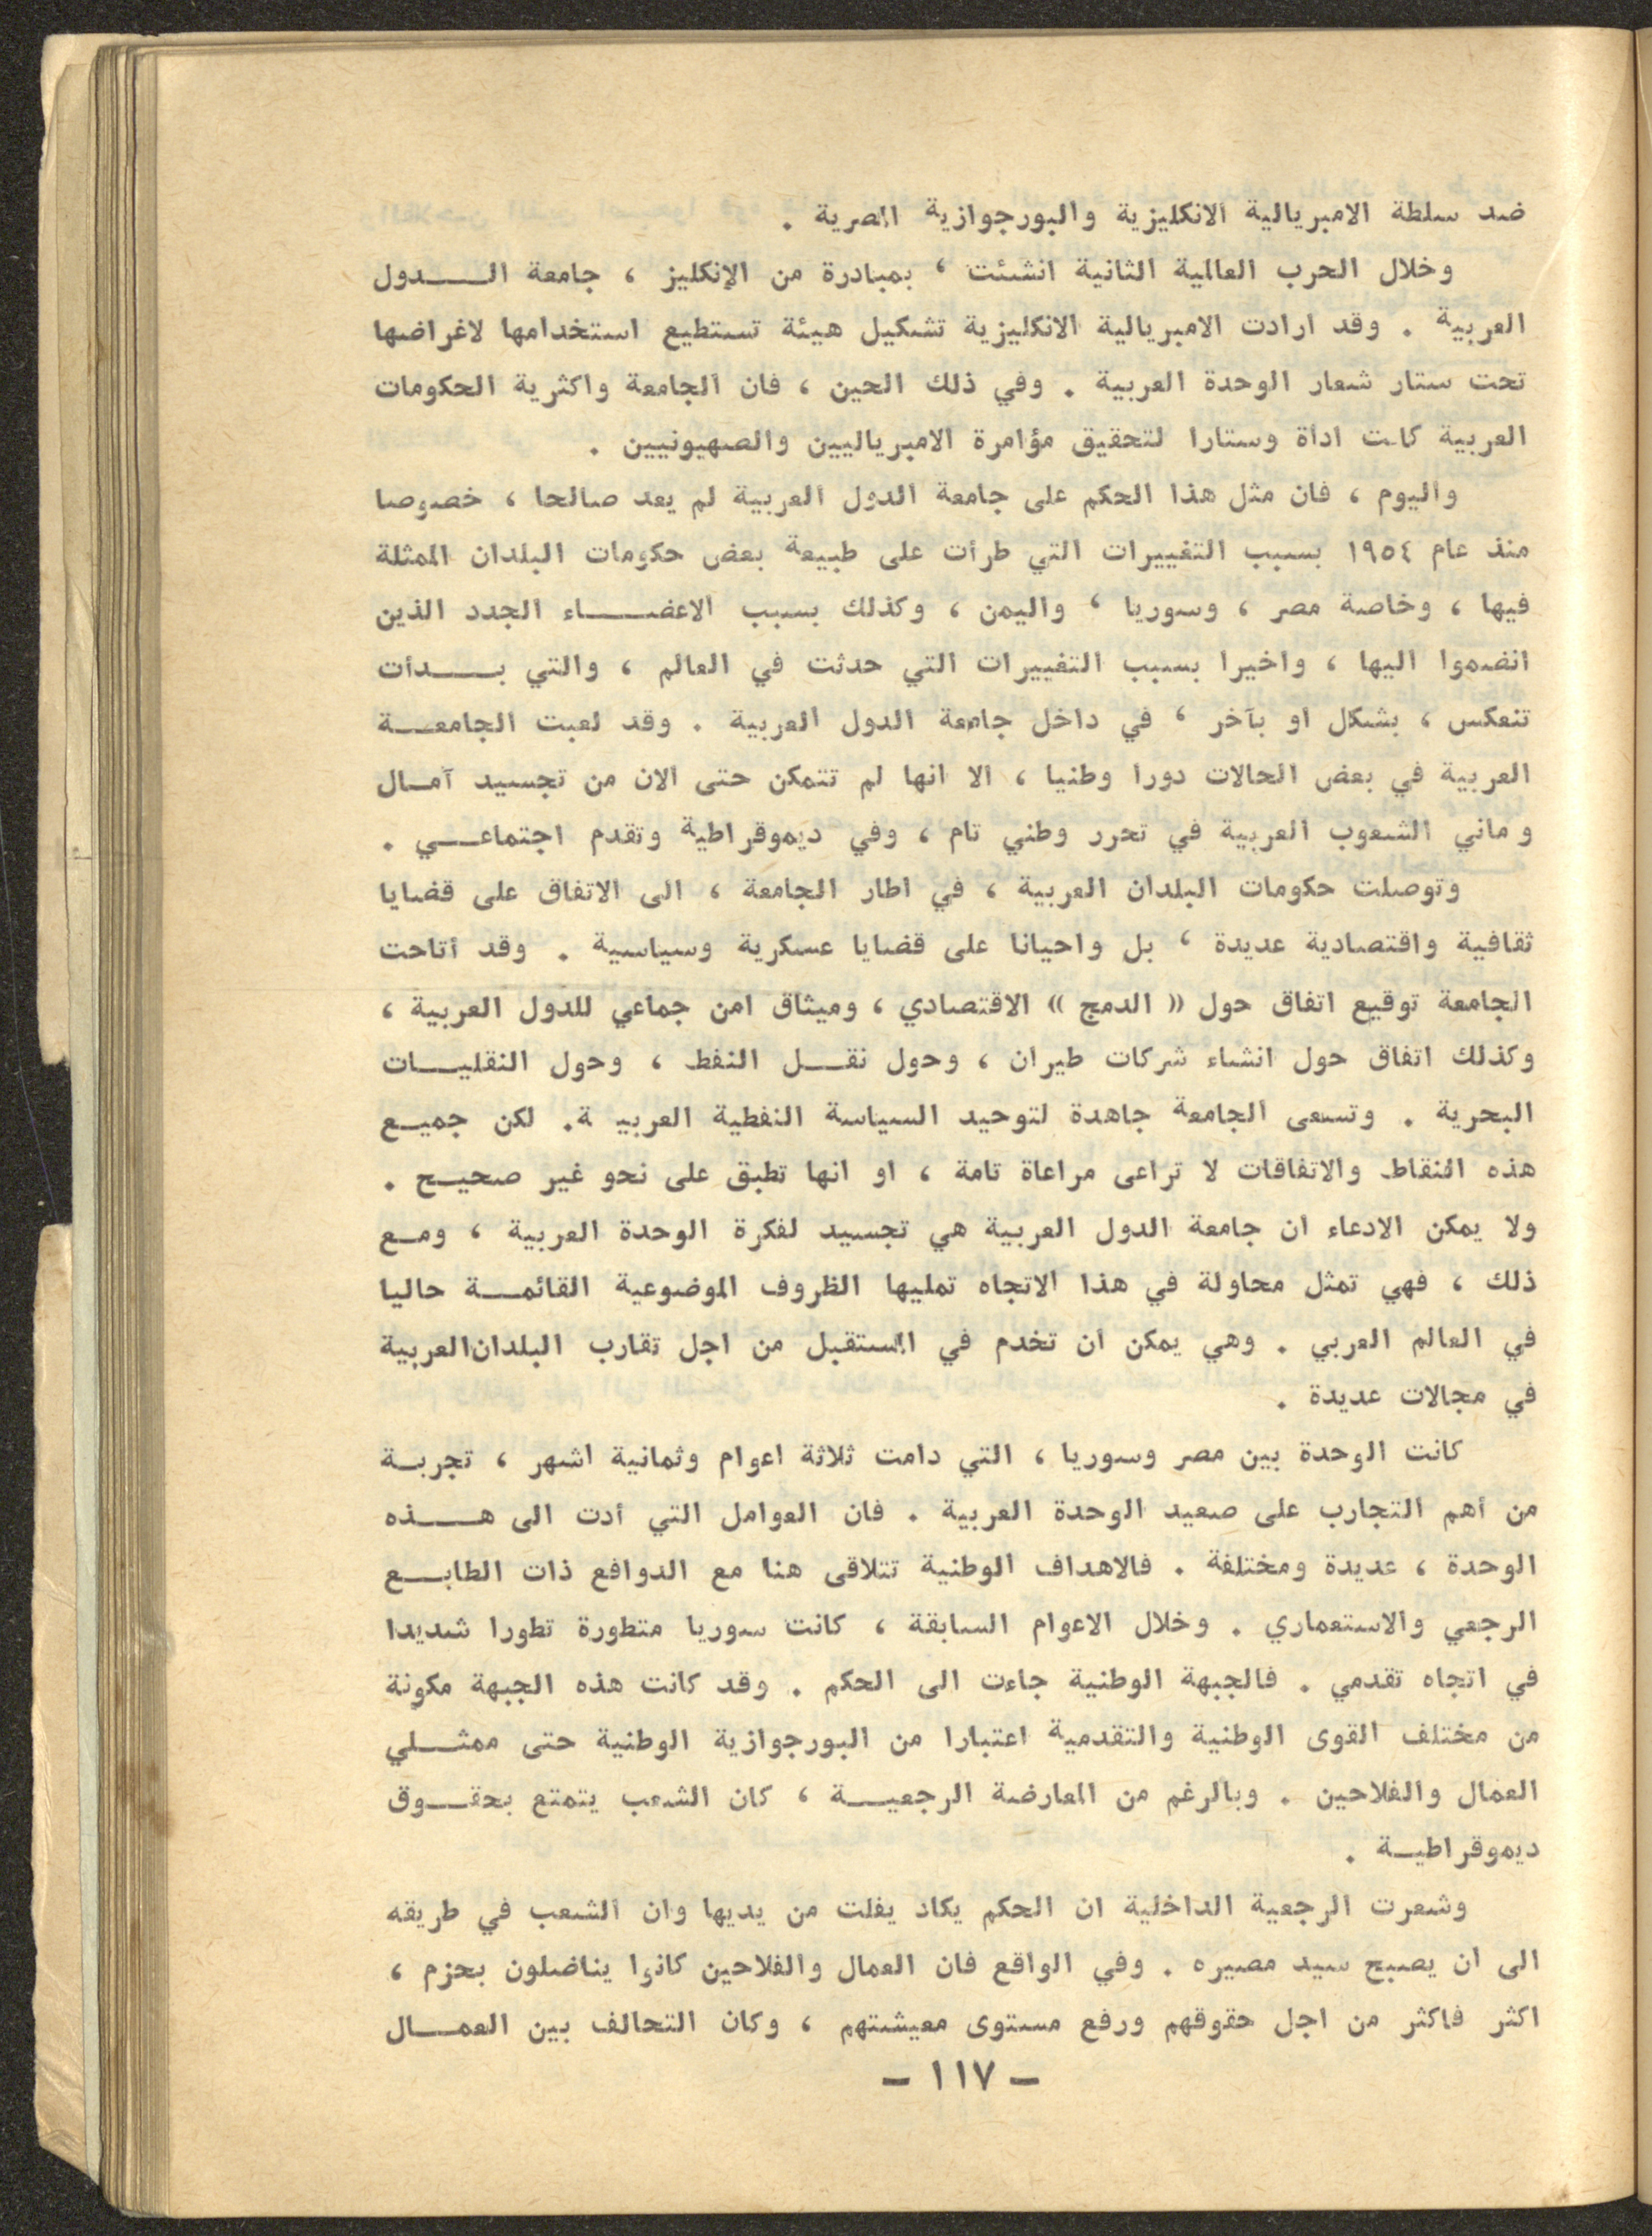 ضد سلطة الامبريالية الانكليزية والبورجوازية المصرية .
وخلال الحرب العالمية الثانية انشئت ، بمبادرة من الإنكليز ، جامعة الــدول
العربية . وقد ارادت الامبريالية الانكليزية تشكيل هيئة تستطيع استخدامها لاغراضها
تحت ستار شعار الوحدة العربية . وفي ذلك الحين ، فان الجامعة واكثرية الحكومات
العربية كانت اداة وستارا لتحقيق مؤامرة الامبرياليين والصهيونيين .
واليوم ، فان مثل هذا الحكم على جامعة الدول العربية لم يعد صالحا ، خصوصا
منذ عام ١٩٥٤ بسبب التغييرات التي طرأت على طبيعة بعض حكومات البلدان الممثلة
فيها ، وخاصة مصر ، وسوريا ، واليمن ، وكذلك بسبب الاعضــاء الجدد الذين
انضموا اليها ، واخيرا بسبب التغييرات التي حدثت في العالم ، والتي بــدأت
تنعكس ، بشكل او بآخر ، في داخل جامعة الدول العربية . وقد لعبت الجامعــة
العربية في بعض الحالات دورا وطنيا ، الا انها لم تتمكن حتى الان من تجسيد آمـال
و ماني الشعوب العربية في تحرر وطني تام ، وفي ديموقراطية وتقدم اجتماعــي .
وتوصلت حكومات البلدان العربية ، في اطار الجامعة ، الى الاتفاق على قضايا
ثقافية واقتصادية عديدة ، بل واحيانا على قضايا عسكرية وسياسية . وقد أتاحت
الجامعة توقيع اتفاق حول « الدمج » الاقتصادي ، وميثاق امن جماعي للدول العربية ،
وكذلك اتفاق حول انشاء شركات طيران ، وحول نقــل النفط ، وحول النقليــات
البحرية . وتسعى الجامعة جاهدة لتوحيد السياسة النفطية العربيـ ة. لكن جميـع
هذه النقاط والاتفاقات لا تراعى مراعاة تامة ، او انها تطبق على نحو غير صحيـح .
ولا يمكن الادعاء ان جامعة الدول العربية هي تجسيد لفكرة الوحدة العربية ، ومـع
ذلك ، فهي تمثل محاولة في هذا الاتجاه تمليها الظروف الموضوعية القائمــة حاليا
في العالم العربي . وهي يمكن ان تخدم في المستقبل من اجل تقارب البلدان العربية
في مجالات عديدة .
كانت الوحدة بين مصر وسوريا ، التي دامت ثلاثة اعوام وثمانية اشهر ، تجربـة
من أهم التجارب على صعيد الوحدة العربية . فان العوامل التي أدت الى هــذه
الوحدة ، عديدة ومختلفة . فالاهداف الوطنية تتلاقى هنا مع الدوافع ذات الطابــع
الرجعي والاستعماري . وخلال الاعوام السابقة ، كانت سوريا متطورة تطورا شديدا
في اتجاه تقدمي . فالجبهة الوطنية جاءت الى الحكم . وقد كانت هذه الجبهة مكونة
من مختلف القوى الوطنية والتقدمية اعتبارا من البورجوازية الوطنية حتى ممثــلي
العمال والفلاحين . وبالرغم من المعارضة الرجعيــة ، كان الشعب يتمتع بحقــوق
ديموقراطيـة .
وشعرت الرجعية الداخلية ان الحكم يكاد يفلت من يديها وان الشعب في طريقه
الى ان يصبح سيد مصيره . وفي الواقع فان العمال والفلاحين كانوا يناضلون بحزم ،
اكثر فاكثر من اجل حقوقهم ورفع مستوى معيشتهم ، وكان التحالف بين العمــال
– ١١٧ –